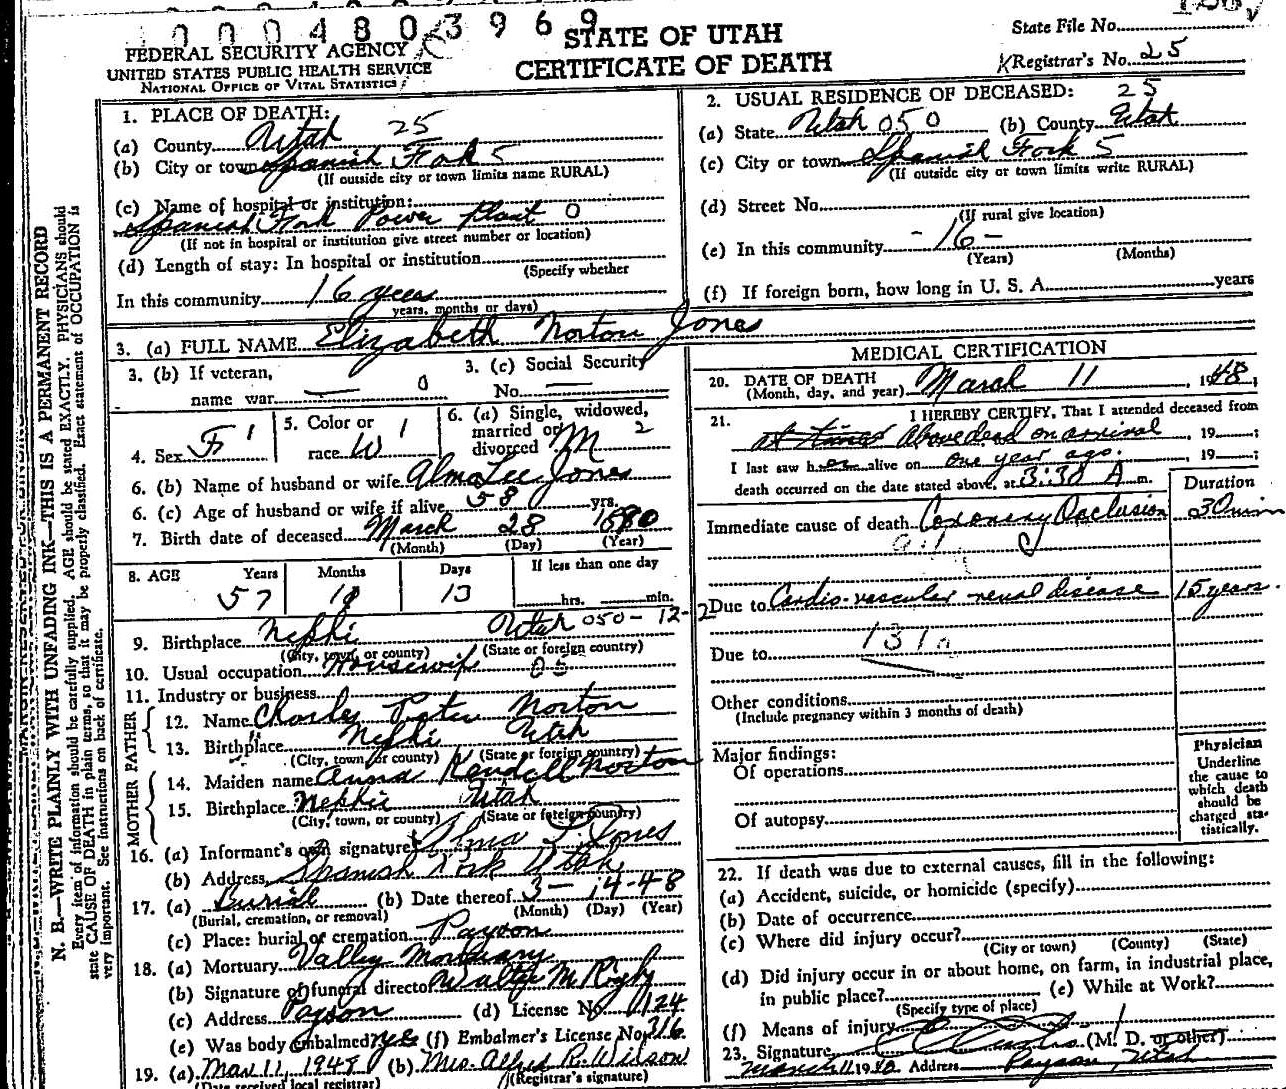 0004803969
STATE OF UTAH
CERTIFICATE OF DEATH
FEDERAL SECURITY AGENCY
UNITED STATES PUBLIC HEALTH SERVICE
NATIONAL OFFICE OF VITAL STATISTICS
State File No.
Registrar's No. 25
N. B.—WRITE PLAINLY WITH UNFADING INK—THIS IS A PERMANENT RECORD
Every item of information should be carefully supplied. AGE should be stated EXACTLY. PHYSICIANS should
state CAUSE OF DEATH in plain terms, so that it may be properly classified. Exact statement of OCCUPATION is
very important. See instructions on back of certificate.
1. PLACE OF DEATH:
(a) County Utah 25
(b) City or town Spanish Fork 5
(If outside city or town limits name RURAL)
(c) Name of hospital or institution:
Spanish Fork Power Plant 0
(If not in hospital or institution give street number or location)
(d) Length of stay: In hospital or institution
(Specify whether
In this community 16 years
years, months or days)
2. USUAL RESIDENCE OF DECEASED: 25
(a) State Utah 050 (b) County Utah
(c) City or town Spanish Fork 5
(If outside city or town limits write RURAL)
(d) Street No.
(If rural give location)
(e) In this community -16-
(Years) (Months)
(f) If foreign born, how long in U. S. A. years
3. (a) FULL NAME Elizabeth Norton Jones
3. (b) If veteran,
name war — 0
3. (c) Social Security
No. —
4. Sex F 1
5. Color or
race W 1
6. (a) Single, widowed,
married or
divorced M 2
6. (b) Name of husband or wife Alma Lee Jones
6. (c) Age of husband or wife if alive 58 yrs.
7. Birth date of deceased March 28
(Month) (Day) (Year)
8. AGE Years Months Days If less than one day
57 13 hrs. min.
9. Birthplace Nephi Utah 050-12-2
(City, town, or county) (State or foreign country)
10. Usual occupation Housewife 05
11. Industry or business
FATHER
12. Name Charley Peter Norton
13. Birthplace Nephi Utah
(City, town or county) (State or foreign country)
MOTHER
14. Maiden name Anna Kendell Norton
15. Birthplace Nephi Utah
(City, town, or county) (State or foreign country)
16. (a) Informant's own signature Alma L. Jones
(b) Address Spanish Fork Utah
17. (a) Burial (b) Date thereof 3-14-48
(Burial, cremation, or removal) (Month) (Day) (Year)
(c) Place: burial or cremation Payson
18. (a) Mortuary Valley Mortuary
(b) Signature of funeral director Walter M Rigby
(c) Address Payson (d) License No. 1124
(e) Was body embalmed yes (f) Embalmer's License No. 316
19. (a) Mar 11, 1948 (b) Mrs. Alfred R. Wilson
(Date received local registrar) (Registrar's signature)
MEDICAL CERTIFICATION
20. DATE OF DEATH
(Month, day, and year) March 11, 1948;
21. I HEREBY CERTIFY, That I attended deceased from
at times Above dead on arrival, 19 ;
I last saw her alive on one year ago., 19 ;
death occurred on the date stated above, at 3:30 A m.
Duration
Immediate cause of death Coronary Occlusion 30 min
Due to Cardio-vascular renal disease 15 years.
Due to 131a
Other conditions
(Include pregnancy within 3 months of death)
Major findings:
Of operations
Of autopsy
Physician
Underline
the cause to
which death
should be
charged sta-
tistically.
22. If death was due to external causes, fill in the following:
(a) Accident, suicide, or homicide (specify)
(b) Date of occurrence
(c) Where did injury occur?
(City or town) (County) (State)
(d) Did injury occur in or about home, on farm, in industrial place,
in public place? (e) While at Work?
(Specify type of place)
(f) Means of injury
23. Signature (M. D. or other)
March 11 19 Address Payson, Utah